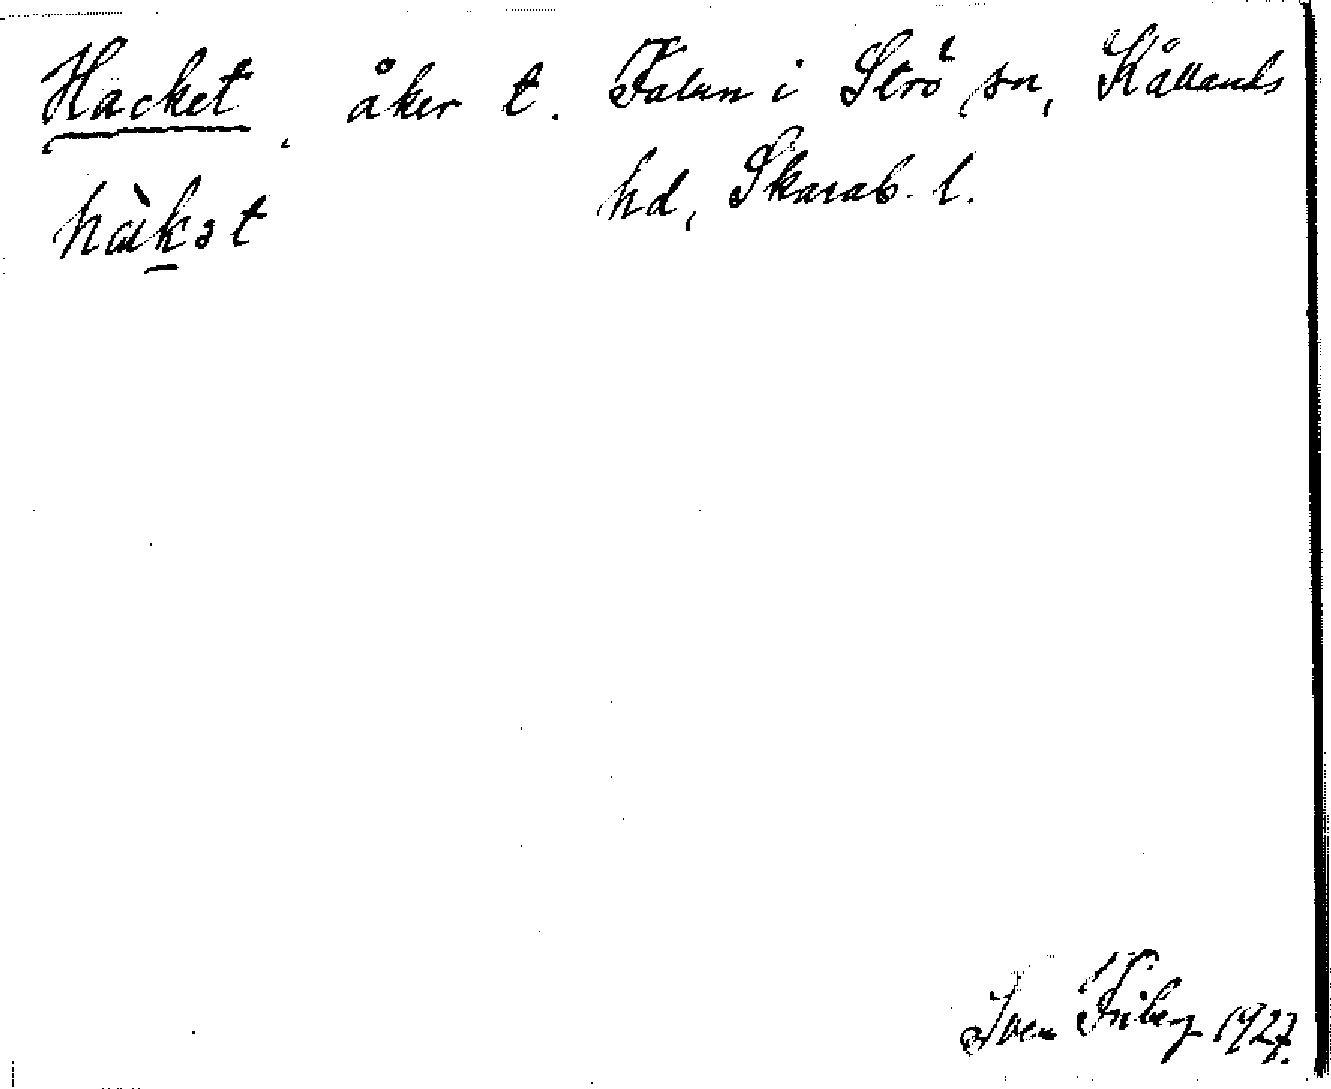 Häcket, åker t. Falun i Strö sn, Kållands
hd, Skarab. l.
hàkət
Sven Friberg 1927.